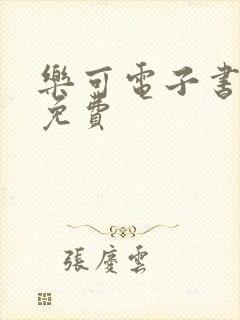 樂可電子書
免費
張慶雲